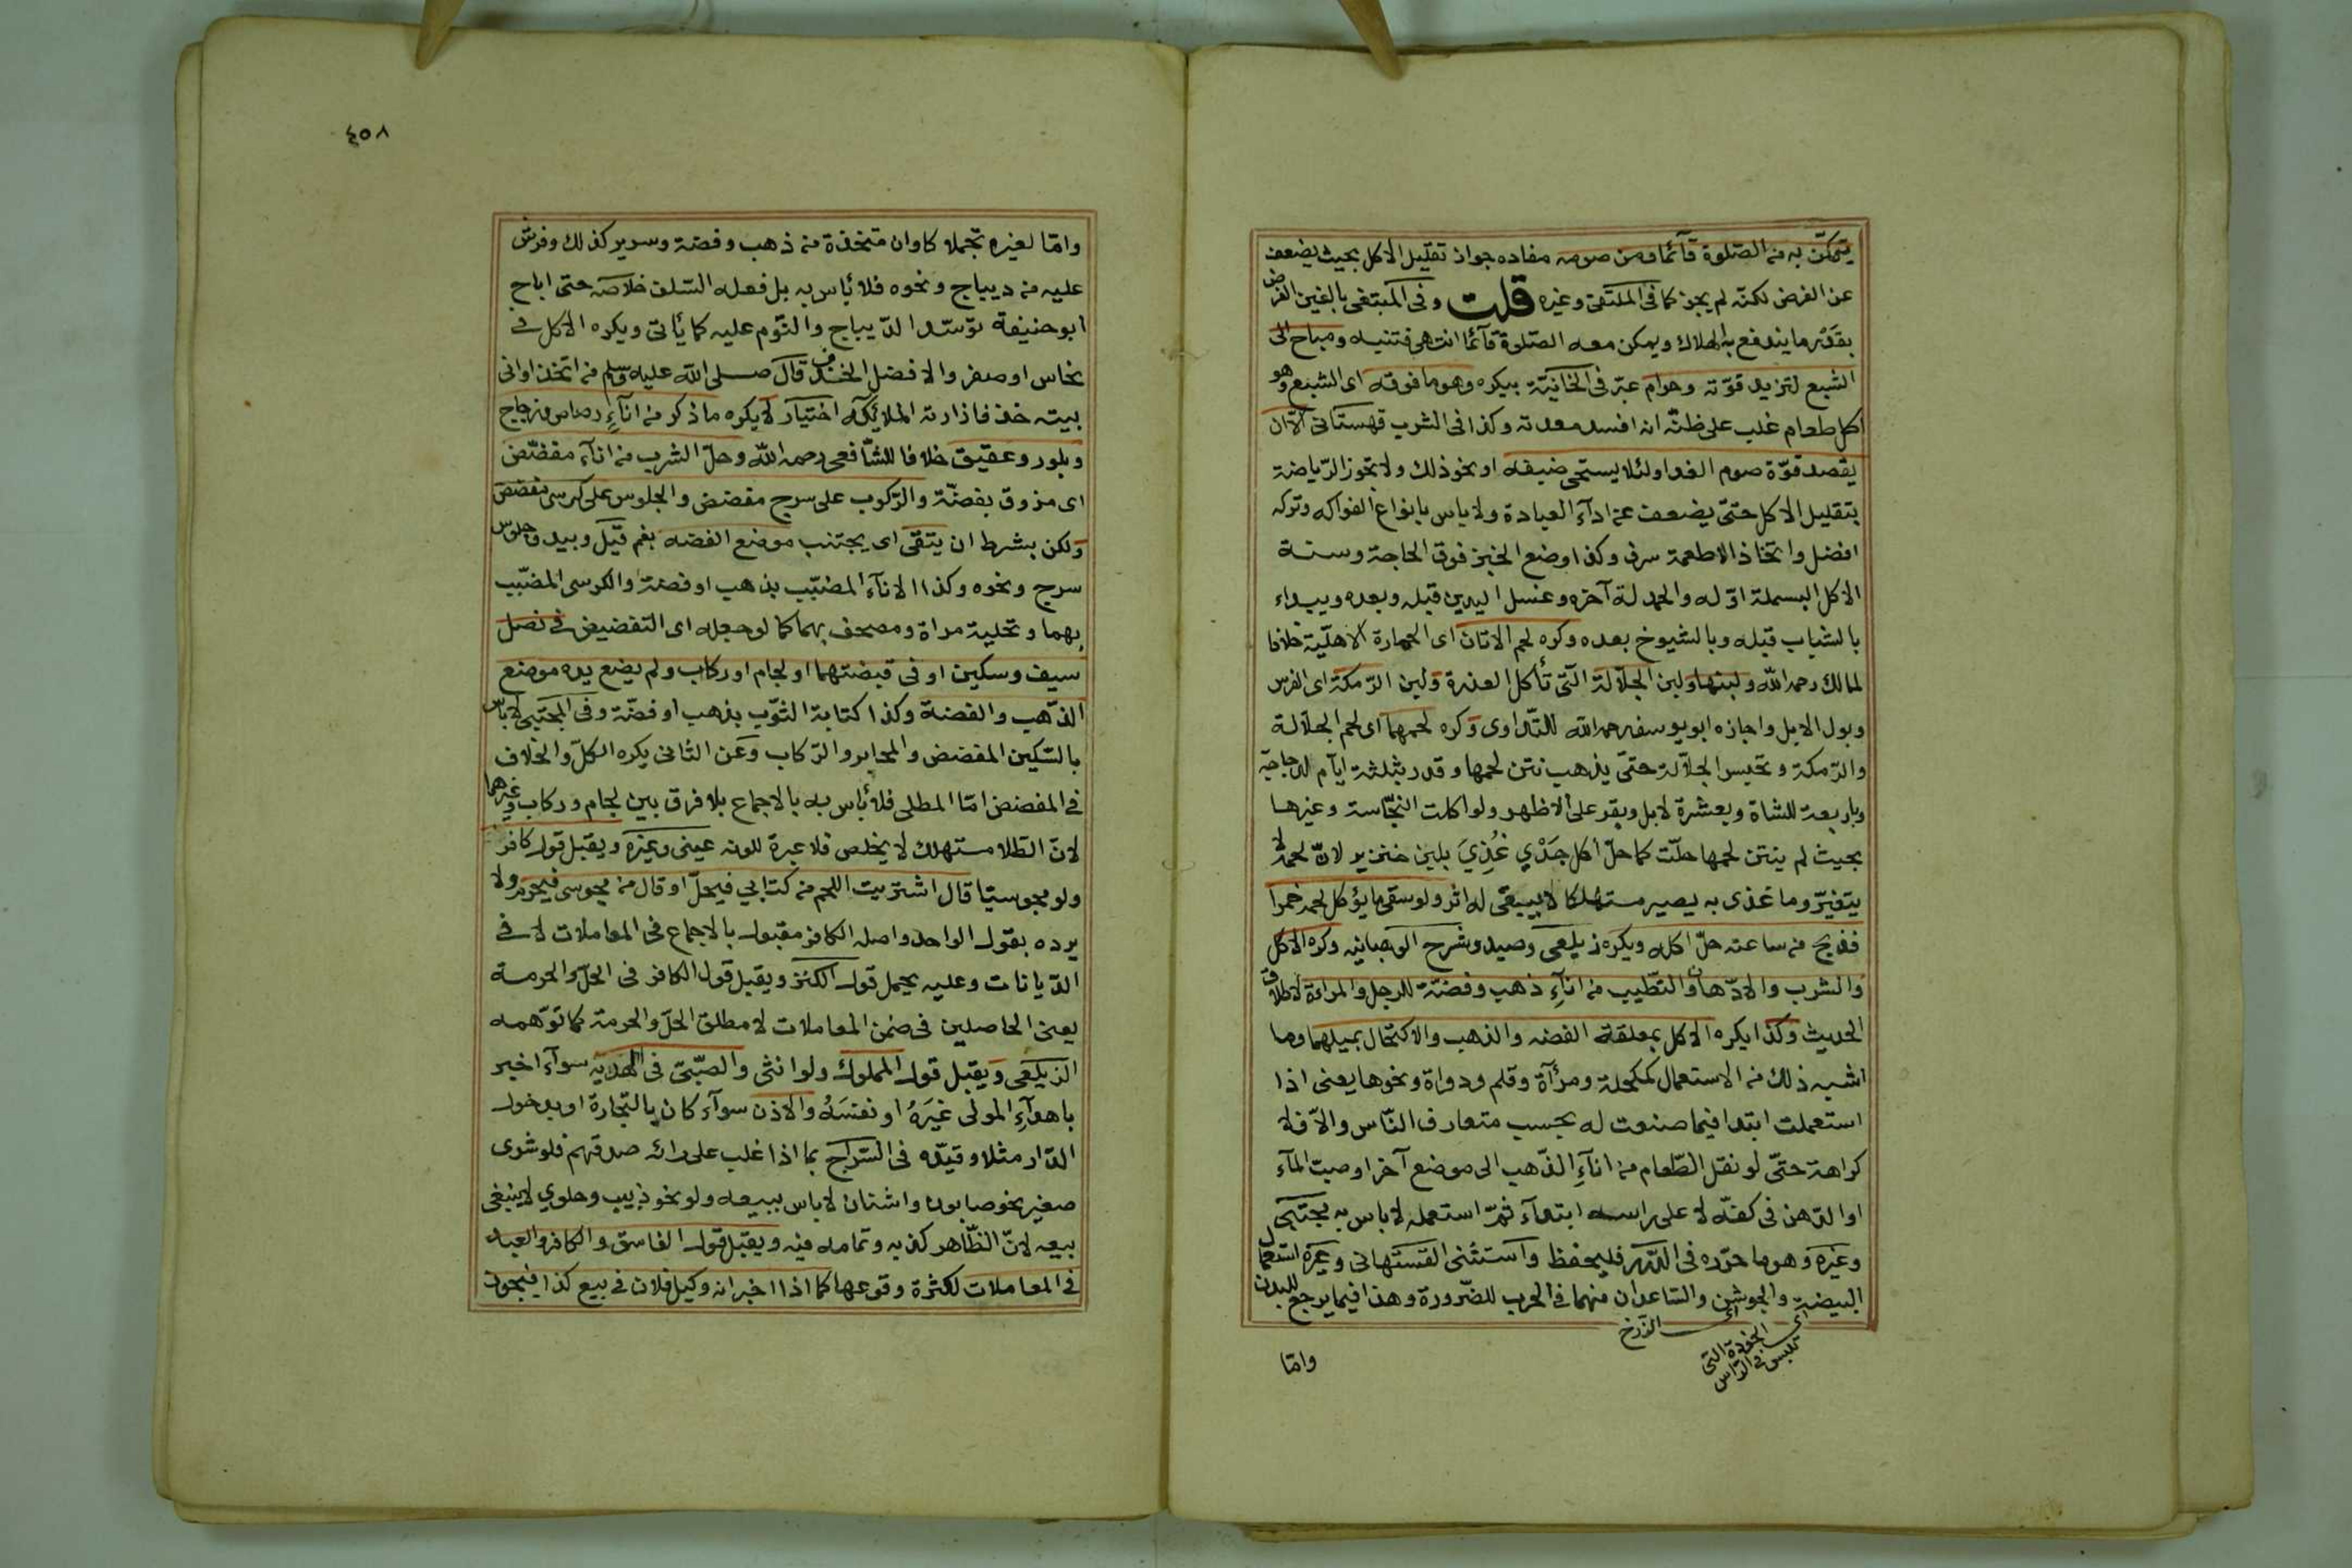 يتمكّن به من الصّلوة قآئما ومن صومه مفاده جواز تقليل الاكل بحيث يضعف
عن الفرض لكنّه لم يجز كما فى الملتقى وغيره قلت وفى المبتغى بالغين الفرض
بقدر ما يندفع به الهلاك ويمكن معه الصّلوة قآئما انتهى فتنبه ومباح الى
الشبع لتزيد قوّته وحرام عبّر فى الخانيّة بيكره وهو ما فوقه اى الشبع وهو
اكل طعام غلب على ظنّه انه افسد معدته وكذا فى الشرب قهستانى الّا ان
يقصد قوّة صوم الغد او لئلا يستحى ضيفه او نحو ذلك ولا تجوز الرّياضة
بتقليل الاكل حتّى يضعف عن ادآء العبادة ولا باس بانواع الفواكه وتركه
افضل واتخاذ الاطعمة سرف وكذا وضع الخبز فوق الحاجة وسنة
الاكل البسملة اوّله والحمد لة آخره وغسل اليدين قبله وبعده ويبداء
بالشباب قبله وبالشيوخ بعده وكره لحم الاتان اى الحمارة الاهليّة خلافا
لمالك رحمه الله ولبنها ولبن الجلّالة التّى تأكل العذرة ولبن الرّمكة اى الفرس
وبول الابل واجازه ابو يوسف رحمه الله للتّداوى وكره لحمهما اى لحم الجلّالة
والرّمكة وتحبس الجلّالة حتّى يذهب نتن لحمها وقدر بثلثة ايّام لدجاجة
وباربعة للشاة وبعشرة لابل وبقر على الاظهر ولو اكلت النجّاسة وغيرها
بحيث لم ينتن لحمها حلّت كما حلّ اكل جَدْيٍ غُذِيَ بلبن خنزير لانّ لحمه لا
يتغيّر وما غذى به يصير مستهلكا لا يبقى له اثر ولو سقى ما يؤكل لحمه خمرا
فذبح من ساعته حلّ اكله ويكره زيلعى وصيد وشرح الوهبانيه وكره الاكل
والشرب والادّهان والتطّيب من انآءِ ذهب وفضّة للرجل والمراءة لاطلاق
الحديث وكذا يكره الاكل بمعلقة الفضه والذهب والاكتحال بميلهما وما
اشبه ذلك من الاستعمال كمكحلة ومرآة وقلم ودواة ونحوها يعنى اذا
استعملت ابتدا فيما صنعت له بحسب متعارف النّاس والاّ فلا
كراهة حتّى لو نقل الطّعام من انآءِ الذّهب الى موضع آخر او صب المآء
او الدّهن فى كفّه لا على راسه ابتدآء ثمّ استعمله لا باس به مجتبى
وغيره وهو ما حرّره فى الدّرر فليحفظ واستثنى القستهانى وغيره استعمال
البيضة والجوشن والسّاعدان منهما فى الحرب للضّرورة وهذا فيما يرجع للبدن
اى الزرخ
اى الخوذة التى
تلبس فى الرّاس
وامّا
٤٥٨
وامّا لغيره تجملا كاوان متخذة من ذهب وفضة وسرير كذلك وفرش
عليه من ديباج ونحوه فلا بأس به بل فعله السّلف خلاصه حتى اباح
ابو حنيفة توسّد الدّيباج والنّوم عليه كما يأتى ويكره الاكل فى
نحاس او صفر والافضل الخذف قال صلى الله عليه وسلم من اتخذ اوانى
بيته خذفا زارته الملائكة اختيار لا يكره ما ذكر من انآءِ رصاص وزجاج
وبلور وعقيق خلافا للشّافعى رحمه الله وحلّ الشرب من انآء مفضّض
اى مزوق بفضّة والرّكوب على سرج مفضض والجلوس على كرسى مفضض
ولكن بشرط ان يتقى اى يجتنب موضع الفضه بفم قيل وبيد وجلوس
سرج ونحوه وكذا الانآء المضبّب بذهب او فضة والكرسى المضبّب
بهما وتحلية مراة ومصحف بهما كما لو جعله اى التفضيض فى نصل
سيف وسكين او فى قبضتهما او لجام او ركاب ولم يضع يده موضع
الذّهب والفضة وكذا كتابة الثّوب بذهب او فضّة وفى المجتبى لا باس
بالسّكين المفضض والمحابر والرّكاب وعن الثانى يكره الكلّ والخلاف
فى المفضض امّا المطلى فلا بأس به بالاجماع بلا فرق بين لجام وركاب وغيرهما
لانّ الطّلا مستهلك لا يخلص فلا عبرة للونه عينى وغيره ويقبل قول كافر
ولو مجوسيّا قال اشتريت اللحم من كتابي فيحلّ او قال من مجوسى فيحرم ولا
يرده بقول الواحد واصله الكافر مقبول بالاجماع فى المعاملات لا فى
الدّيانات وعليه يحمل قول الكنز ويقبل قول الكافر فى الحلّ والحرمة
يعنى الحاصلين فى ضمن المعاملات لا مطلق الحلّ والحرمة كما توّهمه
الزيلعى ويقبل قول المملوك ولو انثى والصّبّى فى الهديه سوآء اخبر
باهدآءِ المولى غيَرَهُ او نفسَهُ والاذن سوآء كان بالتّجارة او بدخول
الدّار مثلا وقيّده فى السّراج بما اذا غلب على رائه صدقهم فلو شرى
صغير نحو صابون واشنان لا باس ببيعه ولو نحو ذبيب وحلوي لا ينبغى
بيعه لانّ الظّاهر كذبه وتمامه فيه ويقبل قول الفاسق والكافر والعبد
فى المعاملات لكثرة وقوعها كما اذا اخبر انه وكيل فلان فى بيع كذا فيجوز